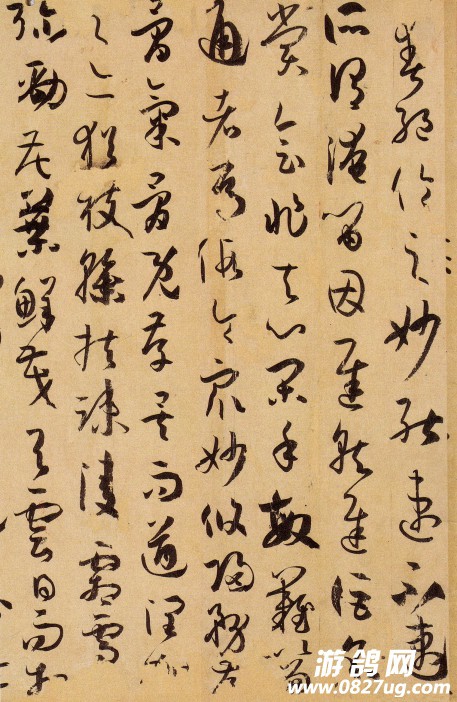 爽絕倫之妙能速不速
所謂淹留因遲就遲詎名
賞會非夫心閑手敏難以兼
通者焉假令衆妙攸歸務存
骨氣骨既存矣而遒潤加
之亦猶枝幹扶疎凌霜雪
弥勁花葉鮮茂與雲日而相
游鸽网
www.0827ug.com